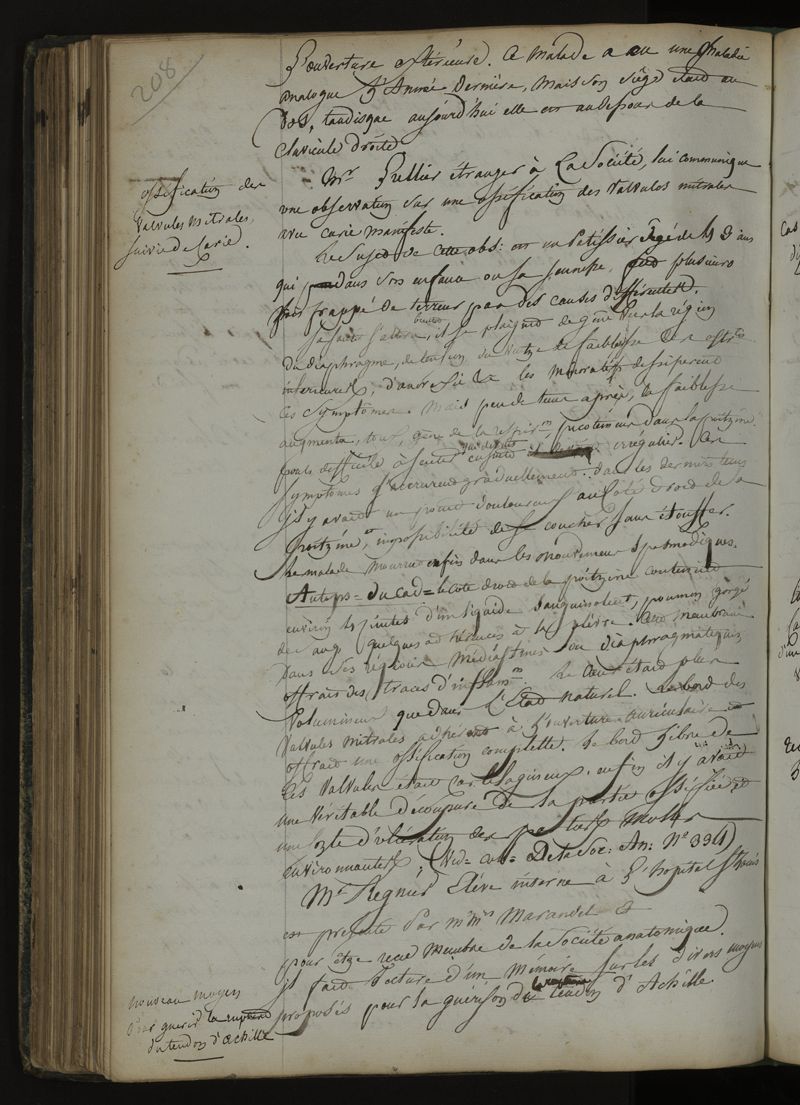 208
L'ouverture extérieure. Ce malade a eu une maladie
analogue l'Année dernière, mais son siége était au
dos, tandisque aujourd'hui elle est au dessous de la
Clavicule droite
ossification des
valvules mitrales,
suivie de carie.
Mr. Pellier étranger à la Société, lui communique
une observation sur une ossification des valvules mitrales
avec carie manifeste.
Le Sujet de cette obs: est un Patissier âgé de 43 ans
qui dans son enfance ou sa jeunesse, fut plusieurs
fois frappé de terreur par des causes différentes.
Sa santé s'altéra, il se plaignit de gêne vers la région
du diaphragme, de tension, de faiblesse des extrtés
inférieures, les dissipèrent
ces symptômes. Mais peu de tems après, la faiblesse
augmenta, toux, gêne de la respiron dans la poitrine.
pouls difficile à sentir ensuite irrégulier. Ces
symptômes s'accrurent graduellement. Dans les derniers tems
il y avait un point douloureux au côté droit de la
poitrine, impossibilité de se coucher sans étouffer.
Le malade mourut enfin dans les mouvemens spasmodiques.
Autops= du Cad= le côté droit de la poitrine contenait
environ 4 pintes d'un liquide sanguinolent, poumon gorgé
de sang quelques adhérences à la plèvre. Cette membrane
dans ses régions médiastines ou diaphragmatiques
offrait des traces d'inflamon. Le Cœur était plus
volumineux que dans l'Etat naturel. Le bord des
valvules mitrales adhérent à l'ouverture auriculaire
offrait une ossification complette. Le bord libre de
ces valvules était cartilagineux, enfin il y avait
une véritable découpure de la partie ossifiée et
une sorte d'ulcération des parties molles
environnantes. (Vid= De la Soc: An: No 334)
Mr. Regnier Elève interne à l'hopital St Louis
est présenté par mrs Marandel &
pour être reçu membre de la Société anatomique.
il fait lecture d'un Mémoire sur les divers moyens
proposés pour la guérison de la rupture du tendon d'Achille.
nouveau moyen
pour guérir la rupture
du tendon d'achille